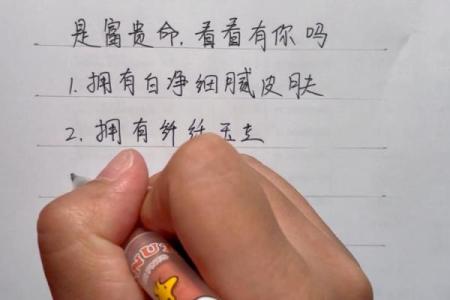 是富贵命,看看有你吗
1.拥有白净细腻皮肤
2.拥有纤纤玉